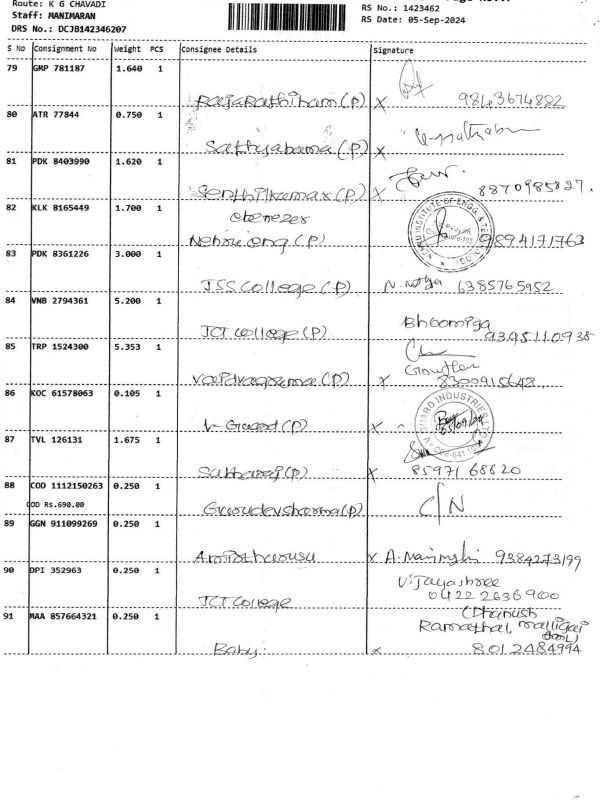 Route: K G CHAVADI
Staff: MANIMARAN
DRS No.: DCJB142346207
RS No.: 1423462
RS Date: 05-Sep-2024
S No Consignment No Weight PCS Consignee Details Signature
79 GMP 781187 1.640 1
Rajarathinam (P) x 9843674882
80 ATR 77844 0.750 1
Sathyabama (P) x
81 PDK 8403990 1.620 1
Senthilkumar (P) x 8870985827.
82 KLK 8165449 1.700 1
ebenezer
Nehru eng (P) 9894171763
83 PDK 8361226 3.000 1
JSS College (P) 6385765952
84 VNB 2794361 5.200 1
JCT College (P) Bhoomiga
9345110938
85 TRP 1524300 5.353 1
x 8300915648
86 KOC 61578063 0.105 1
V-Guard (P) x
87 TVL 126131 1.675 1
(P) x 85971 68620
88 COD 1112150263 0.250 1
COD Rs.690.00
Gurudevsharma (P) C/N
89 GGN 911099269 0.250 1
x A. 9384273199
90 DPI 352963 0.250 1
Vijayashree
JCT College 0422 2636900
91 MAA 857664321 0.250 1
Dhanush
Ramathal malligai
Baby. x 8012484994